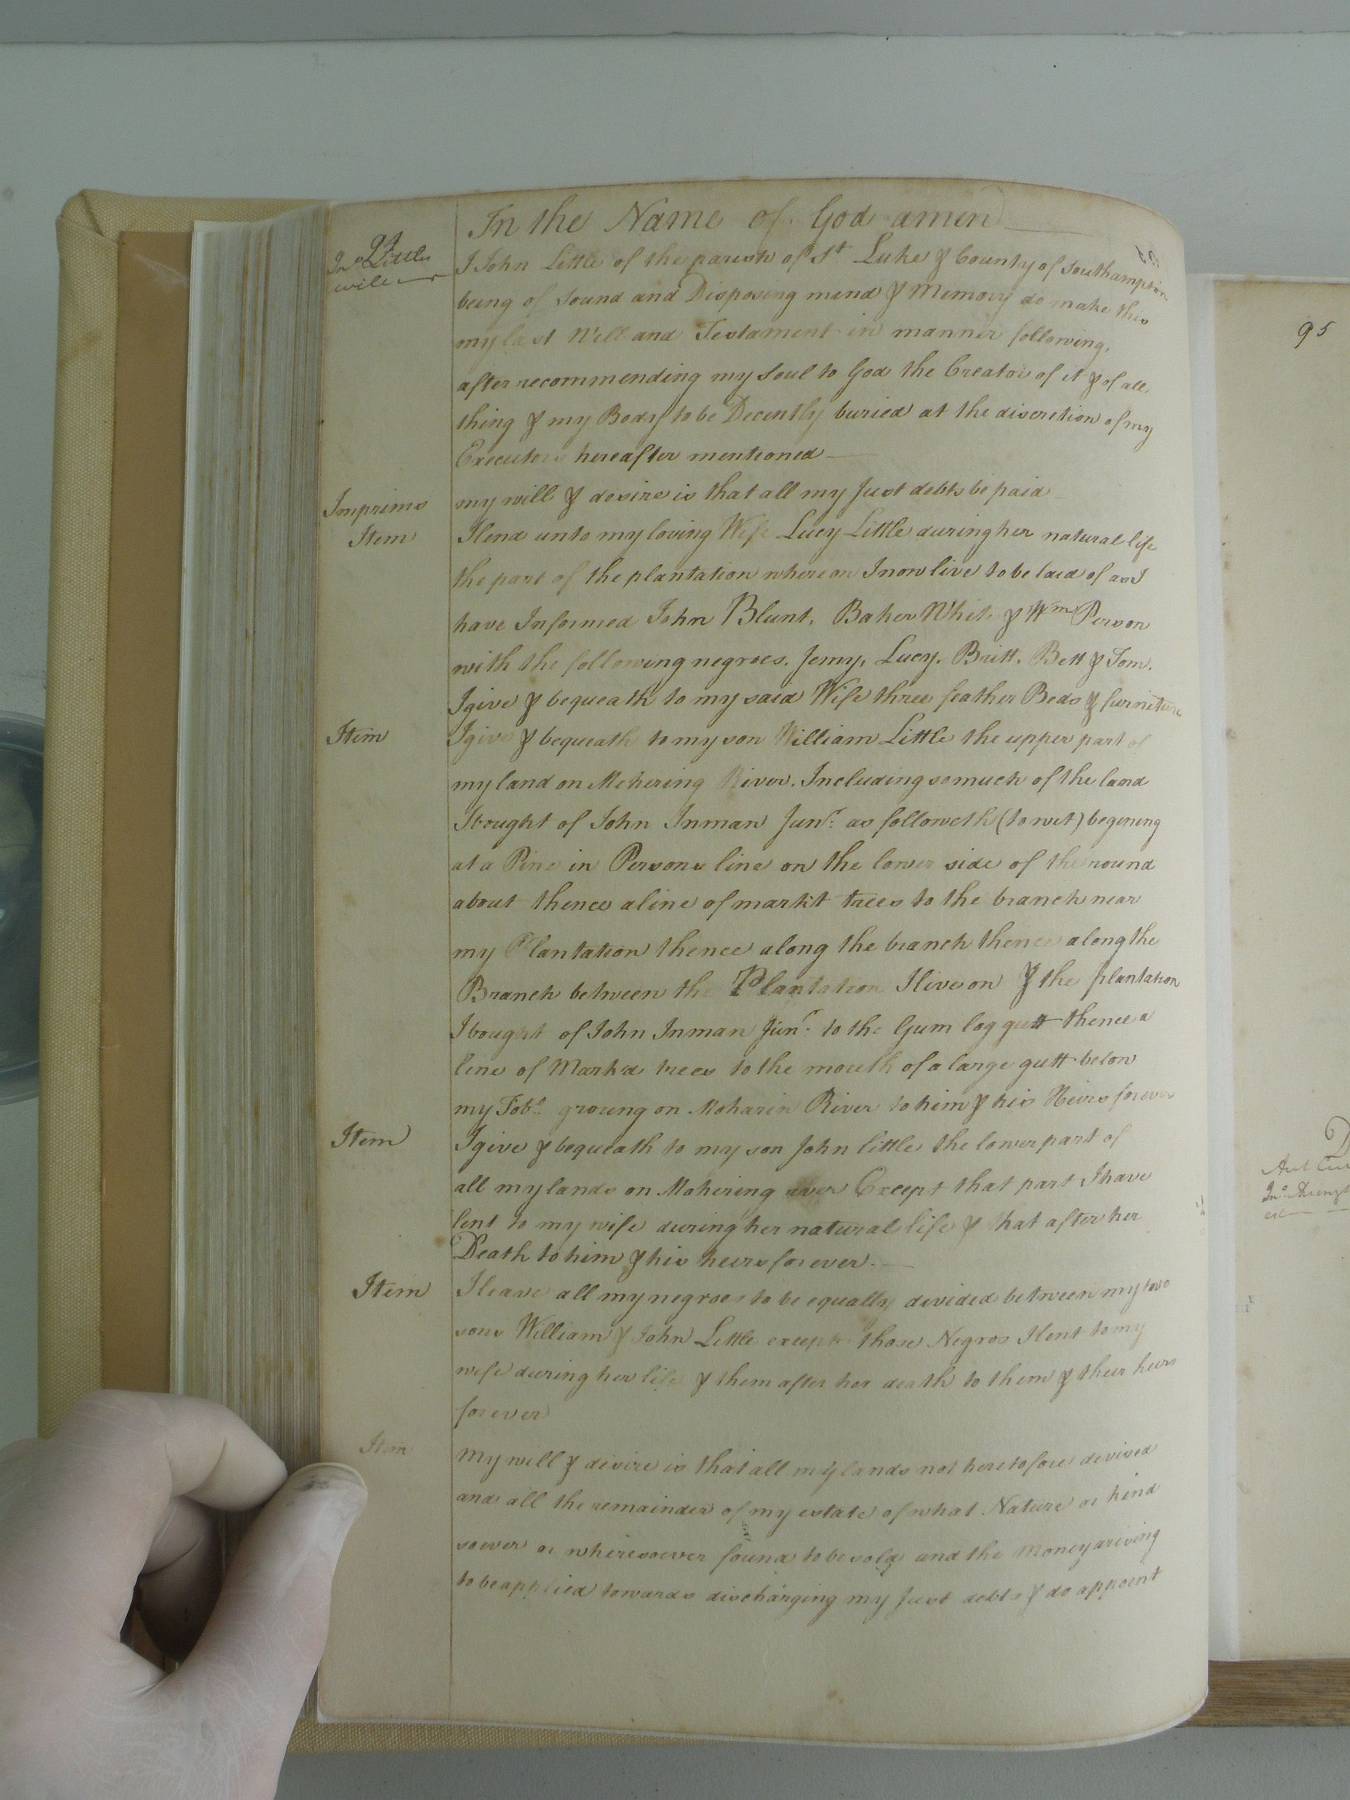 In the Name of God amen
94
Jno. Littles
will
I John Little of the parish of St. Luke & County of Southampton
being of sound and Disposing mind & Memory do make this
my last Will and Testament in manner following,
after recommending my soul to God the Creator of it & of all
thing & my Body to be Decently buried at the discretion of my
Executors hereafter mentioned
Imprimo my will & desire is that all my Just debts be paid
Item I lend unto my loving Wife Lucy Little during her natural life
the part of the plantation whereon I now live to be laid of as I
have Informed John Blunt, Baker Whit & Wm Person
with the following negroes. Jemy, Lucy, Britt, Bett & Tom.
I give & bequeath to my said Wife three feather Beds & furniture
Item I give & bequeath to my son William Little the upper part of
my land on Mehering River. Including so much of the land
I bought of John Inman Junr. as followeth (to wit) begining
at a Pine in Persons line on the lower side of the round
about thence a line of markt trees to the branch near
my Plantation thence along the branch thence along the
Branch between the Plantation I live on & the plantation
I bought of John Inman Junr. to the Gum log gutt thence a
line of Markd trees to the mouth of a large gutt below
my Tobo. groung on Moharin River to him & his Heirs forever
Item I give & bequeath to my son John little the lower part of
all my lands on Mohering river Except that part I have
lent to my wife during her natural life & that after her
Death to him & his heirs forever.
Item I leave all my negroes to be equally divided between my two
sons William & John Little except those Negros I lent to my
wife during her life & them after her death to them & their heirs
forever
Item My will & desire is that all my lands not heretofore devised
and all the remainder of my estate of what Nature or kind
soever or wheresoever found to be sold and the Money arising
to be applied towards discharging my Just debts & do appoint
95